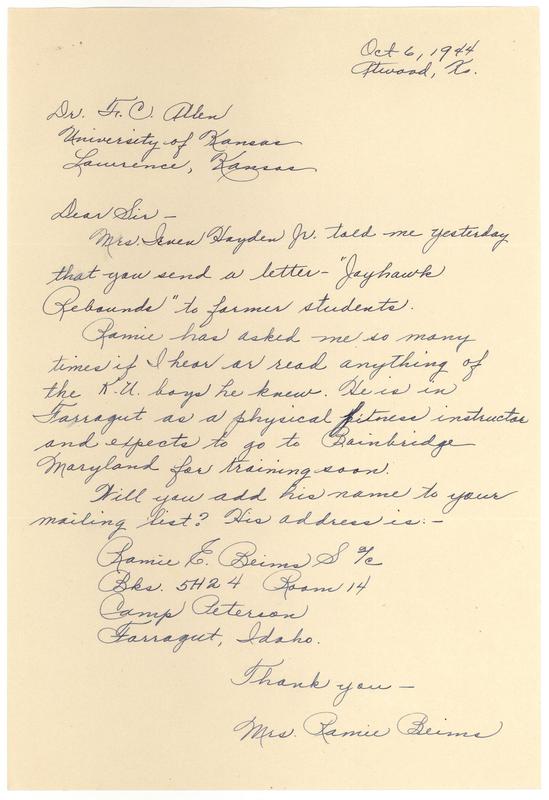 Oct 6, 1944
Atwood, Ks.
Dr. F. C. Allen
University of Kansas
Lawrence, Kansas
Dear Sir —
Mrs. Hayden Jr. told me yesterday
that you send a letter - "Jayhawk
Rebounds" to former students.
Ramie has asked me so many
times if I hear or read anything of
the K.U. boys he knew. He is in
Farragut as a physical fitness instructor
and expects to go to Bainbridge
Maryland for training soon.
Will you add his name to your
mailing list? His address is: -
Ramie E. Beims S 2/c
Bks. 5424 Room 14
Camp Peterson
Farragut, Idaho.
Thank you —
Mrs. Ramie Beims